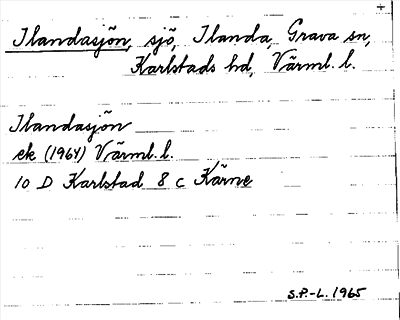 Ilandasjön, sjö, Ilanda, Grava sn,
Karlstads hd, Värml. l.
Ilandasjön
ek (1964) Värml. l.
10 D Karlstad 8 c Kärne
S.P.-L. 1965